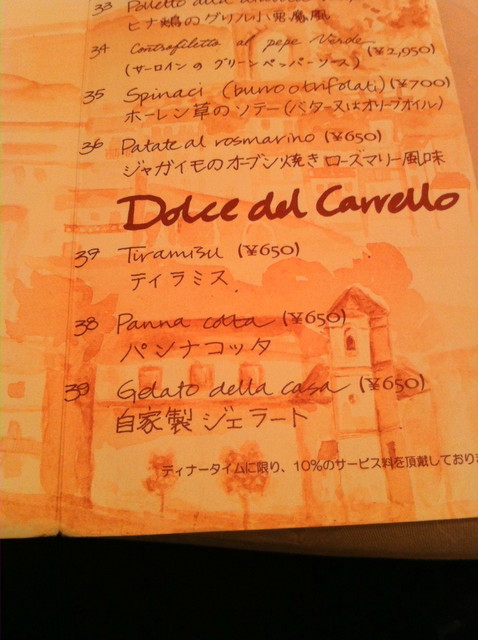 33 Polletto alla
ヒナ鶏のグリル小悪魔風
34 Controfiletto al pepe Verde (¥2,950)
(サーロインの グリーンペッパーソース)
35 Spinaci (burro o trifolati) (¥700)
ホーレン草のソテー(バター又はオリーブオイル)
36 Patate al rosmarino (¥650)
ジャガイモのオーブン焼き ローズマリー風味
Dolce del Carrello
37 Tiramisu (¥650)
ティラミス
38 Panna cotta (¥650)
パンナコッタ
39 Gelato della casa (¥650)
自家製 ジェラート
ディナータイムに限り、10%のサービス料を頂戴しておりま